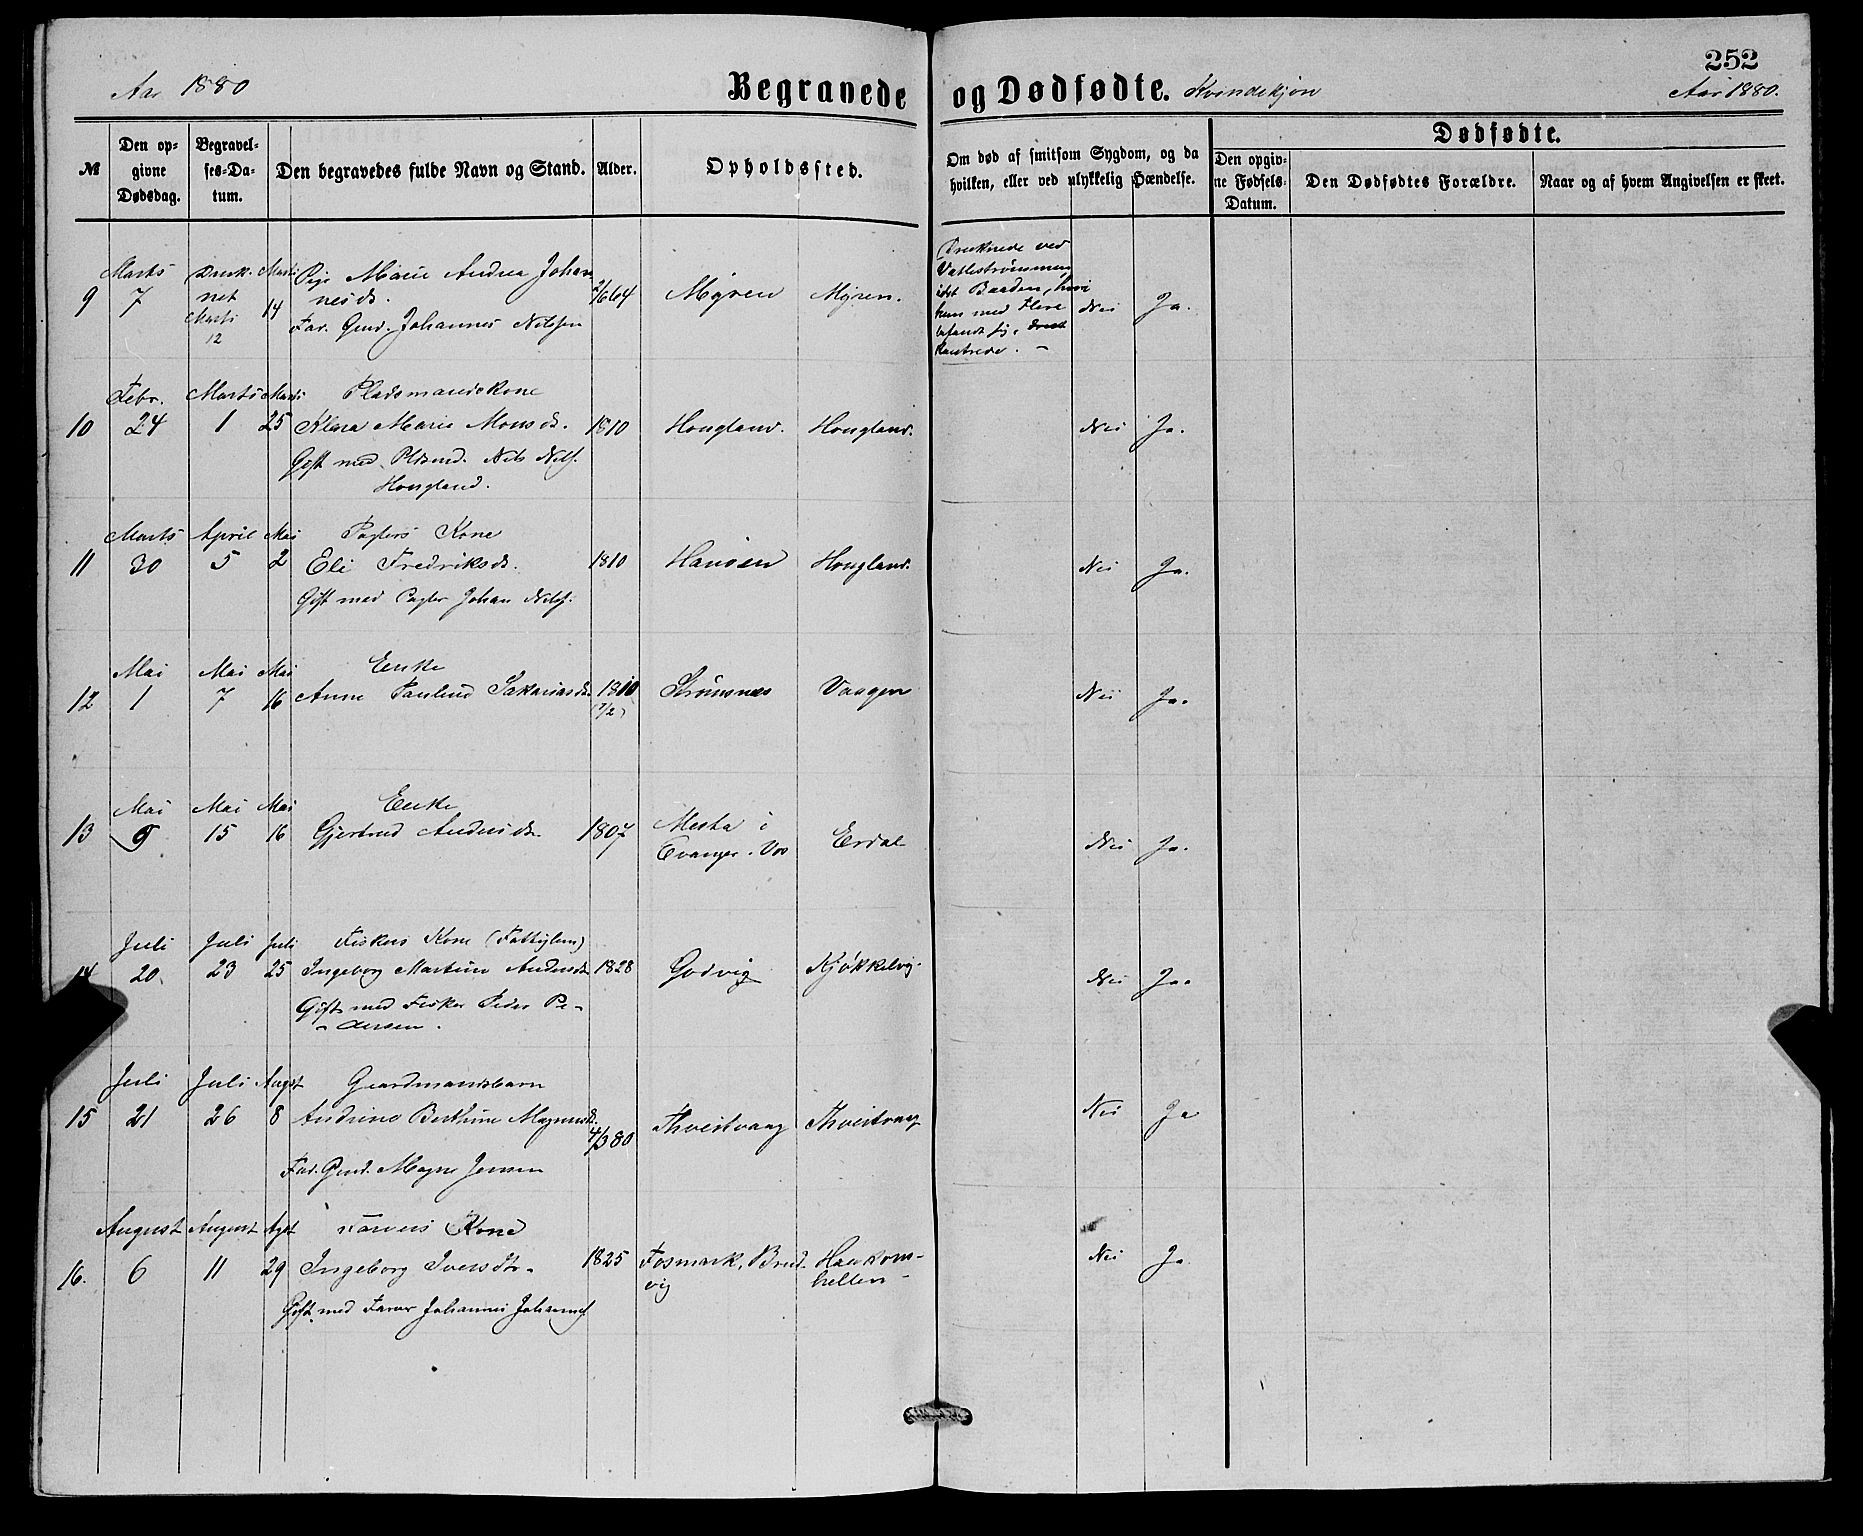 252
Aar 1880
Begravede og Dødfødte.
Kvindekjøn
Aar 1880.
№
Den opgivne Dødsdag.
Begravelses-Datum.
Den begravedes fulde Navn og Stand.
Alder.
Opholdssted.
Om død af smitsom Sygdom, og da hvilken, eller ved ulykkelig Hændelse.
Dødfødte.
Den opgivne Fødsels-Datum.
Den Dødfødtes Forældre.
Naar og af hvem Angivelsen er skeet.
9 Marts 7
Druk-
net
Marts
12
Marts 14
Pige Marie Andrea Johan-
nesd.
Far. Gmd. Johannes Nilsen
2/6 64
Myren
Myren.
Druknede ved
Vatlestrømmen
idet Baaden, hvori
hun med Flere
befandt sig,
kantrede. -
Nei Ja.
10 Febr. 24
Marts 1
Marts 25
Pladsmandskone
Klara Marie Monsd.
Gift med Pldsmd. Nils Nils.
Hougland.
1810
Hougland.
Hougland.
Nei Ja.
11 Marts 30
April 5
Mai 2
Kone
Eli Fredriksd.
Gift med Johan Nils.
1810
Hougland.
Nei Ja.
12 Mai 1
Mai 7
Mai 16
Enke
Anne Pauline Sakariasd.
1810
(7/2)
Strømsnes
Vaagen
Nei Ja.
13 Mai 9
Mai 15
Mai 16
Enke
Gjertrud Andersd.
1807
Mesta i
Evanger. Vos
Erdal
Nei Ja.
14 Juli 20.
Juli 23
Juli 25
Fiskers Kone (Fattiglem)
Ingeborg Martine Andersd.
Gift med Fisker Peder Pe-
dersen.
1828
Godvig
Kjøkkelvig.
Nei Ja.
15 Juli 21
Juli 26
Augst 8
Gaardmandsbarn
Andrine Berthine Magnusd.
Far. Gmd. Magne Jensen
4/3 80
Thveitvaag
Thveitvaag
Nei Ja
16. August 6
August 11
Agst 29
Farvers Kone
Ingeborg Iversdtr.
Gift med Farver Johannes Johannes.
1825
Fosmark, Brud-
vig
Haakons-
hellen
Nei Ja.